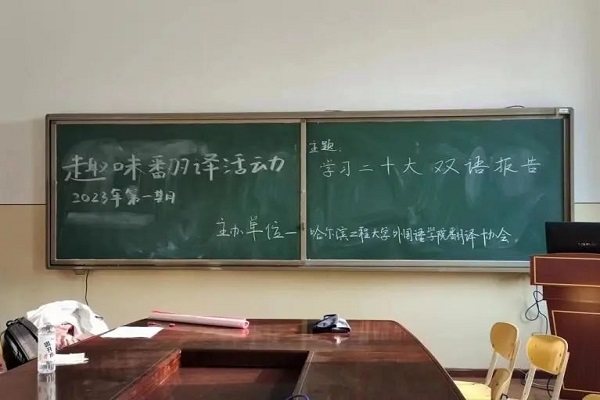 趣味翻译活动
2023年第一期
主题:
学习二十大 双语报告
主办单位—哈尔滨工程大学外国语学院翻译协会。